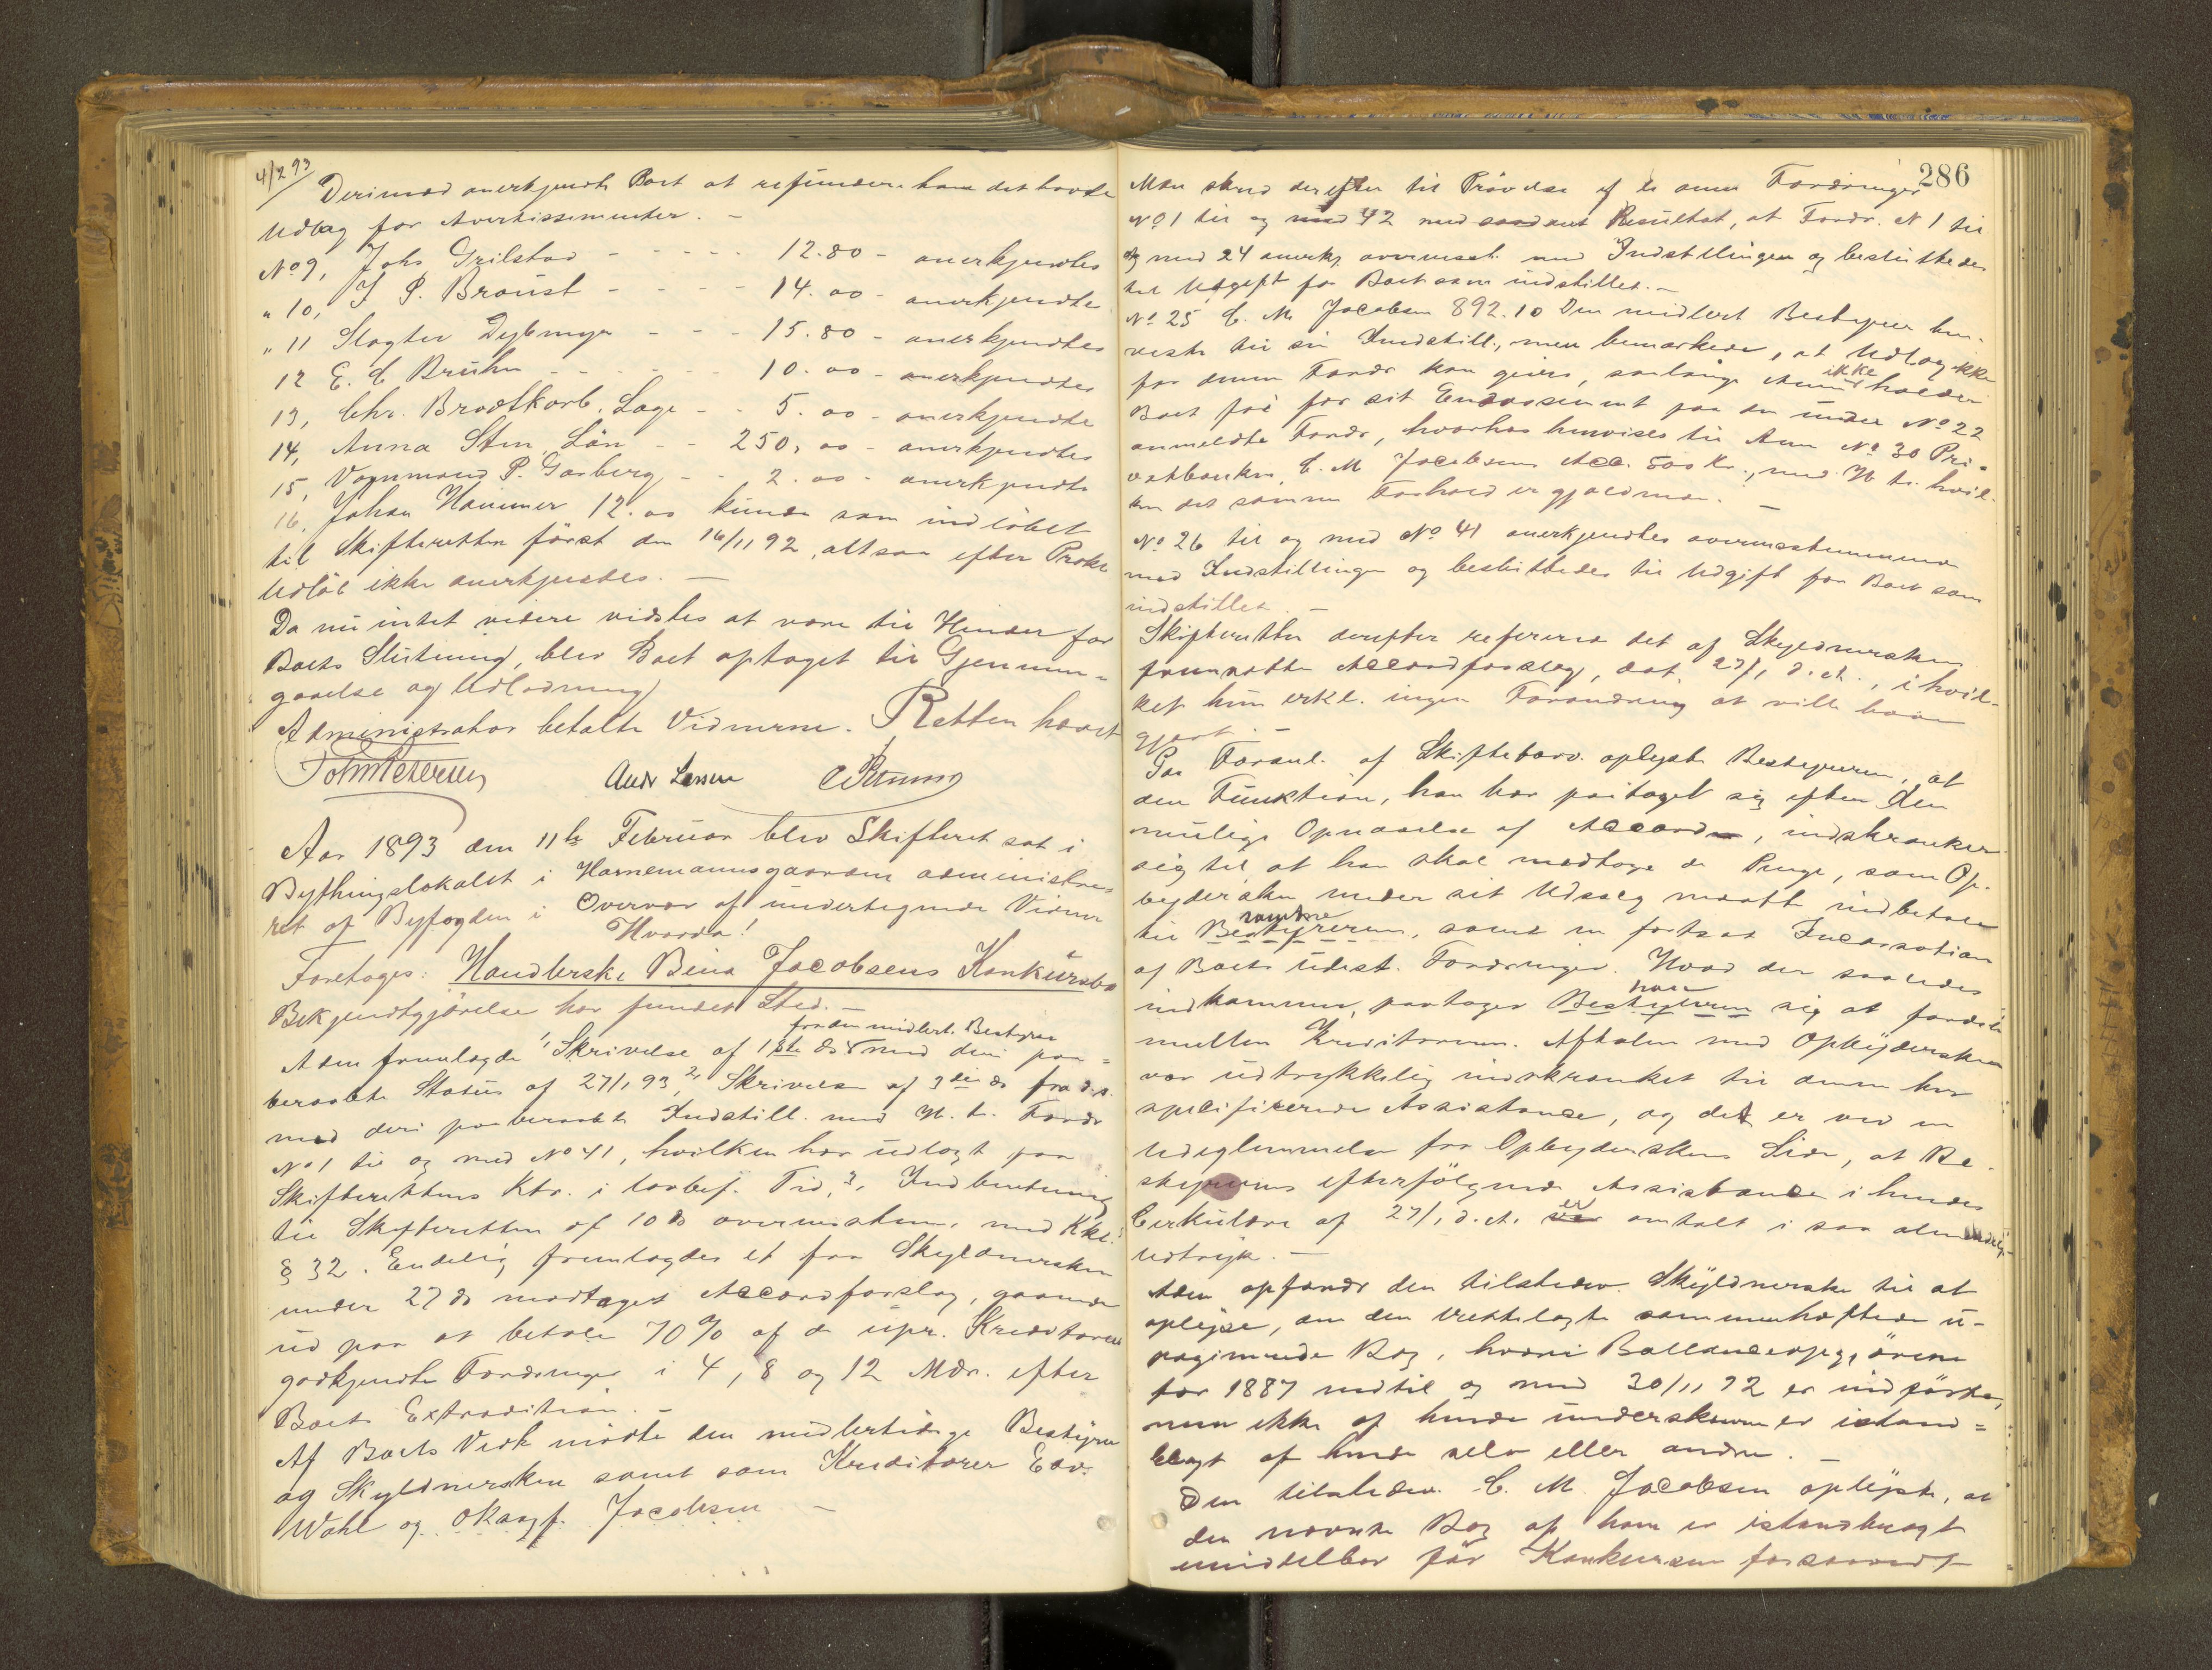 4/2 93
Derimod anerkjendte Boet at refundere ham det havde
Udlæg for Avertissementer. -
No 9, Johs Grilstad - - - - - 12.80 - anerkjendtes
" 10, J. P. Broust - - - - 14.00 - anerkjendtes
" 11 Slagter Dybmyr - - - 15.80 - anerkjendtes
12 E. C Bruhn - - - - - - 10.00 - anerkjendtes
13, Chr. Brodtkorb, Lage - - 5.00 - anerkjendte
14, Anna Sten, Lön - - 250,00 - anerkjendtes
15, Vognmand P. Garberg - - 2.00 - anerkjendte
16, Johan Hammer 12.00 kunde som indløbet
til Skifteretten först den 16/11 92, altsaa efter Prokl
Udløb ikke anerkjendes. -
Da nu intet videre vidstes at være til Hinder for
Boets Slutning, blev Boet optaget til Gjennem-
gaaelse og Udlodning
Administrator betalte Vidnerne. Retten hævet
John Petersen Andr Larsen
Aar 1893 den 11te Februar blev Skifteret sat i
Bythingslokalet i Hornemannsgaarden administre-
ret af Byfogden i Overvær af undertegnede Vidner
Hvorda!
Foretoges: Handlerske Bina Jacobsens Konkursbo
Bekjendtgjörelse har fundet Sted. -
fra den midlert. Bestyrer
Adm fremlagde 1, Skrivelse af 1ste ds med deri paa-
beraabte Status af 27/1 93 2, Skrivelse af 3die ds fra d.s.
med deri paaberaabte Indstill. med H. t. Fordr
No 1 til og med No 41, hvilken har udlagt paa
Skifterettens Ktr. i lovbef. Tid, 3, Indberetning
til Skifteretten af 10 ds overensstem. med Kkl.
§ 32. Endelig fremlagdes et fra Skyldnersken
under 27 ds modtaget Accordforslag, gaaende
ud paa at betale 70% af de upr. Kreditorers
godkjendte Fordringer i 4, 8 og 12 Mdr. efter
Boets Extradition. -
Af Boets Vedk mødte den midlertidige Bestyrer
og Skyldnersken samt som Kreditorer Edv.
Wahl og Jacobsen -
286
Man skred derefter til Prövelse af de anm Fordringer
No 1 til og med 42 med saadant Resultat, at Fordr. N 1 til
og med 24 anerkj overensst. med Indstillingen og besluttedes
til Udgift for Boet som indstillet. -
No 25 C. M. Jacobsen 892.10 Den midlert Bestyrer hen-
viste til sin Indstill., men bemærkede, at Udlæg ikke
for denne Fordr kan gives, saalænge ikke holder
Boet fri for sit Endossement paa den under No 22
anmeldte Fordr, hvorhos henvises til Anm No 30 Pri-
vatbanken, C. M Jacobsens Acc. 500 Kr., med H. t. hvil-
ken det samme Forhold er gjældende. -
No 26 til og med No 41 anerkjendtes overensstemmende
med Indstillingen og besluttedes til Udgift for Boet som
indstillet. -
Skifteretten derefter refererede det af Skyldnersken
fremsatte Accordforslag, dat. 27/1 d. A., i hvil-
ket hun erkl. ingen Forandring at ville have
gjort. -
Paa Foranl. af Skiftebest. oplyste Bestyreren, at
den Funktion, han har paataget sig efter den
mulige Opnaaelse af Accord, indskrænker
sig til, at han skal modtage de Penge, som Op-
byderskn under sit Udsalg maatte indbetale
til Bestyreren, samt en fortsat Incassation
af Boets udest. Fordringer. Hvad der saaledes
han
indkommer, paatager Bestyreren sig at fordele
mellem Kreditorerne. Aftalen med Opbydersken
var udtrykkelig indskrænket til denne her
specificerede Assistance, og det er ved en
Udeglemmelse fra Opbyderskens Side, at Be-
styrerens efterfölgende Assistance i hendes
Cirkulære af 27/1 d. A. er omtalt i saa almindelige
Udtryk. -
Adm opfordr den tilstedev. Skyldnerske til at
oplyse, om den fremlagte sammenhæftede u-
paginerede Bog, hvori Ballanceopgjörene
for 1887 indtil og med 30/11 92 er indförte,
men ikke af hende underskrevne er istand-
bragt af hende selv eller andre. -
Den tilstedev. C. M. Jacobsen oplyste, at
den nævnte Bog af ham er istandbragt
umiddelbar för Konkursen forsaavidt